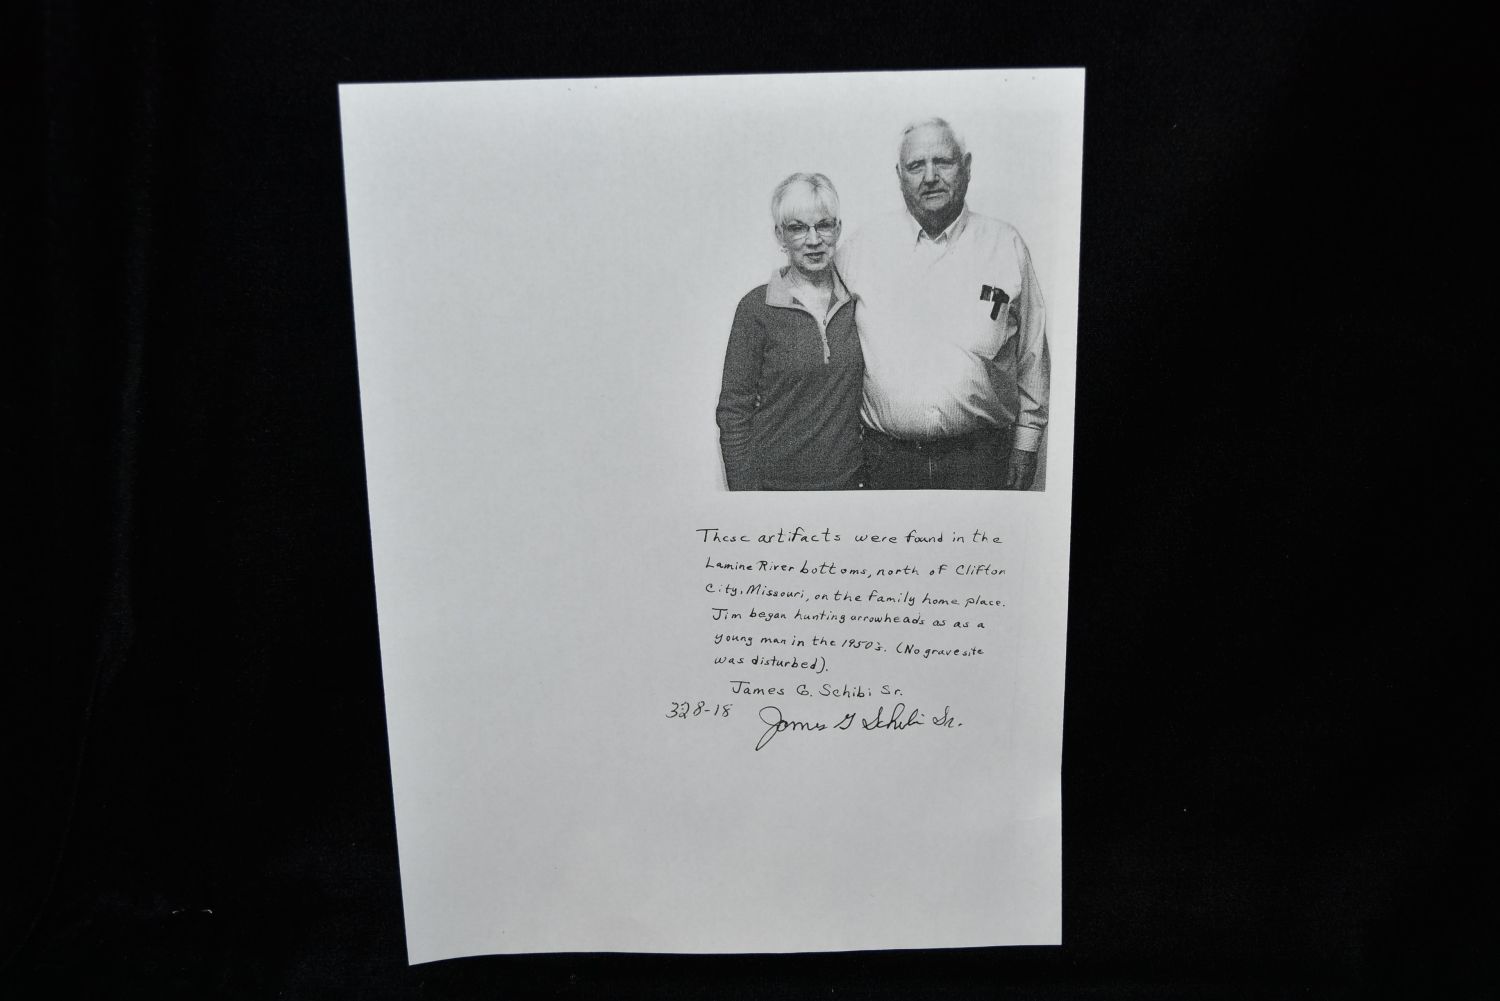 These artifacts were found in the
Lamine River bottoms, north of Clifton
City, Missouri, on the family home place.
Jim began hunting arrowheads as as a
young man in the 1950's. (No gravesite
was disturbed).
James G. Schibi Sr.
328-18 James G Schibi Sr.